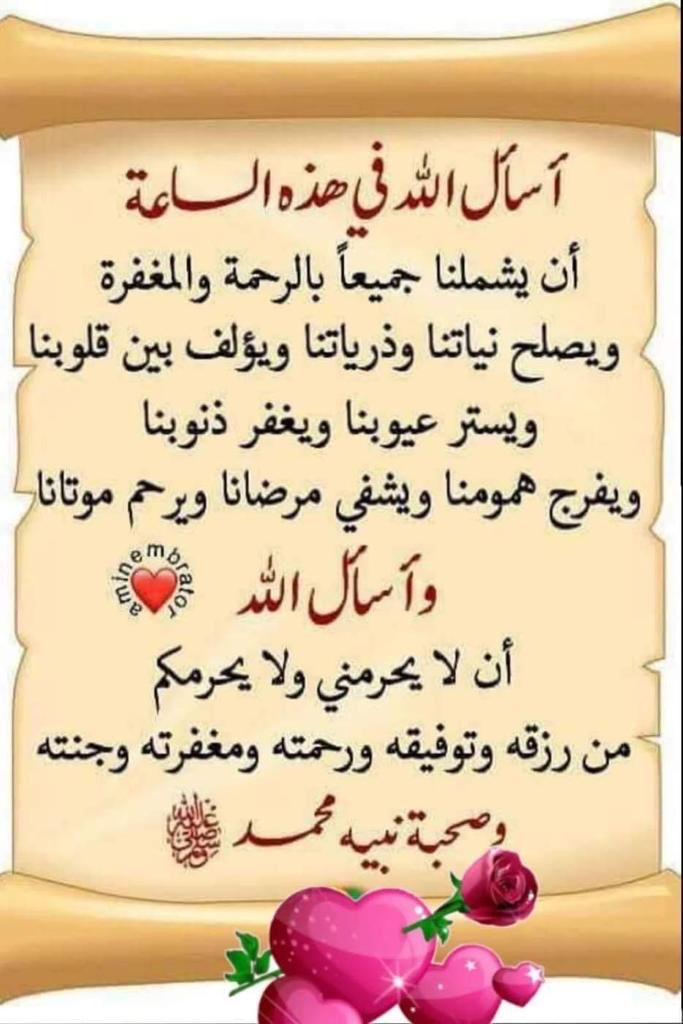 أسأل الله في هذه الساعة
أن يشملنا جميعاً بالرحمة والمغفرة
ويصلح نياتنا وذرياتنا ويؤلف بين قلوبنا
ويستر عيوبنا ويغفر ذنوبنا
ويفرج همومنا ويشفي مرضانا ويرحم موتانا
وأسأل الله
aminembrator
أن لا يحرمني ولا يحرمكم
من رزقه وتوفيقه ورحمته ومغفرته وجنته
وصحبة نبيه محمد ﷺ